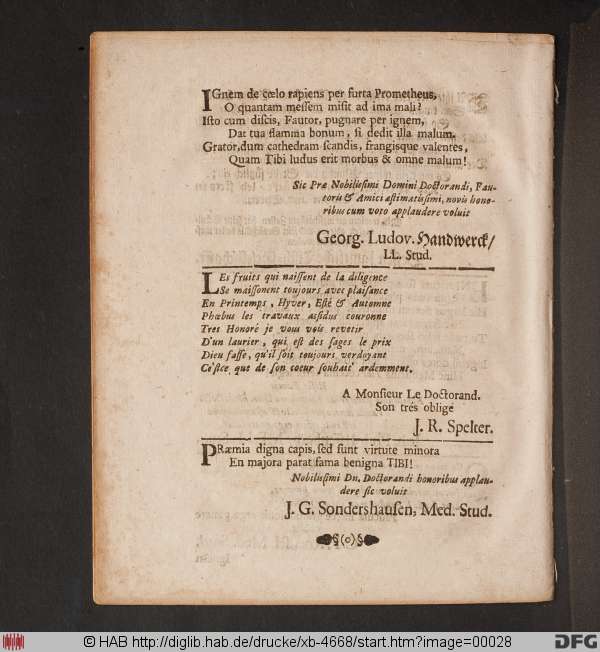 IGnem de cœlo rapiens per furta Prometheus,
O quantam messem misit ad ima mali?
Isto cum discis, Fautor, pugnare per ignem,
Dat tua flamma bonum, si dedit illa malum.
Grator, dum cathedram scandis, frangisque valentes,
Quam Tibi ludus erit morbus & omne malum!
Sic Præ Nobilissimi Domini Doctorandi, Fau-
toris & Amici æstimatissimi, novis hono-
ribus cum voto applaudere voluit
Georg. Ludov. Handwerck/
LL. Stud.
LEs fruits qui naissent de la diligence
Se maissonent toujours avec plaisance
En Printemps, Hyver, Esté & Automne
Phœbus les travaux assidus couronne
Tres Honoré je vous vois revetir
D'un laurier, qui est des sages le prix
Dieu fasse, qu'il soit toujours verdoyant
C'estce que de son coeur souhait' ardemment.
A Monsieur Le Doctorand.
Son trés obligé
J. R. Spelter.
PRæmia digna capis, sed sunt virtute minora
En majora parat fama benigna TIBI!
Nobilissimi Dn. Doctorandi honoribus applau-
dere sic voluit
J. G. Sondershausen, Med. Stud.
§(o)§
© HAB http://diglib.hab.de/drucke/xb-4668/start.htm?image=00028
DFG